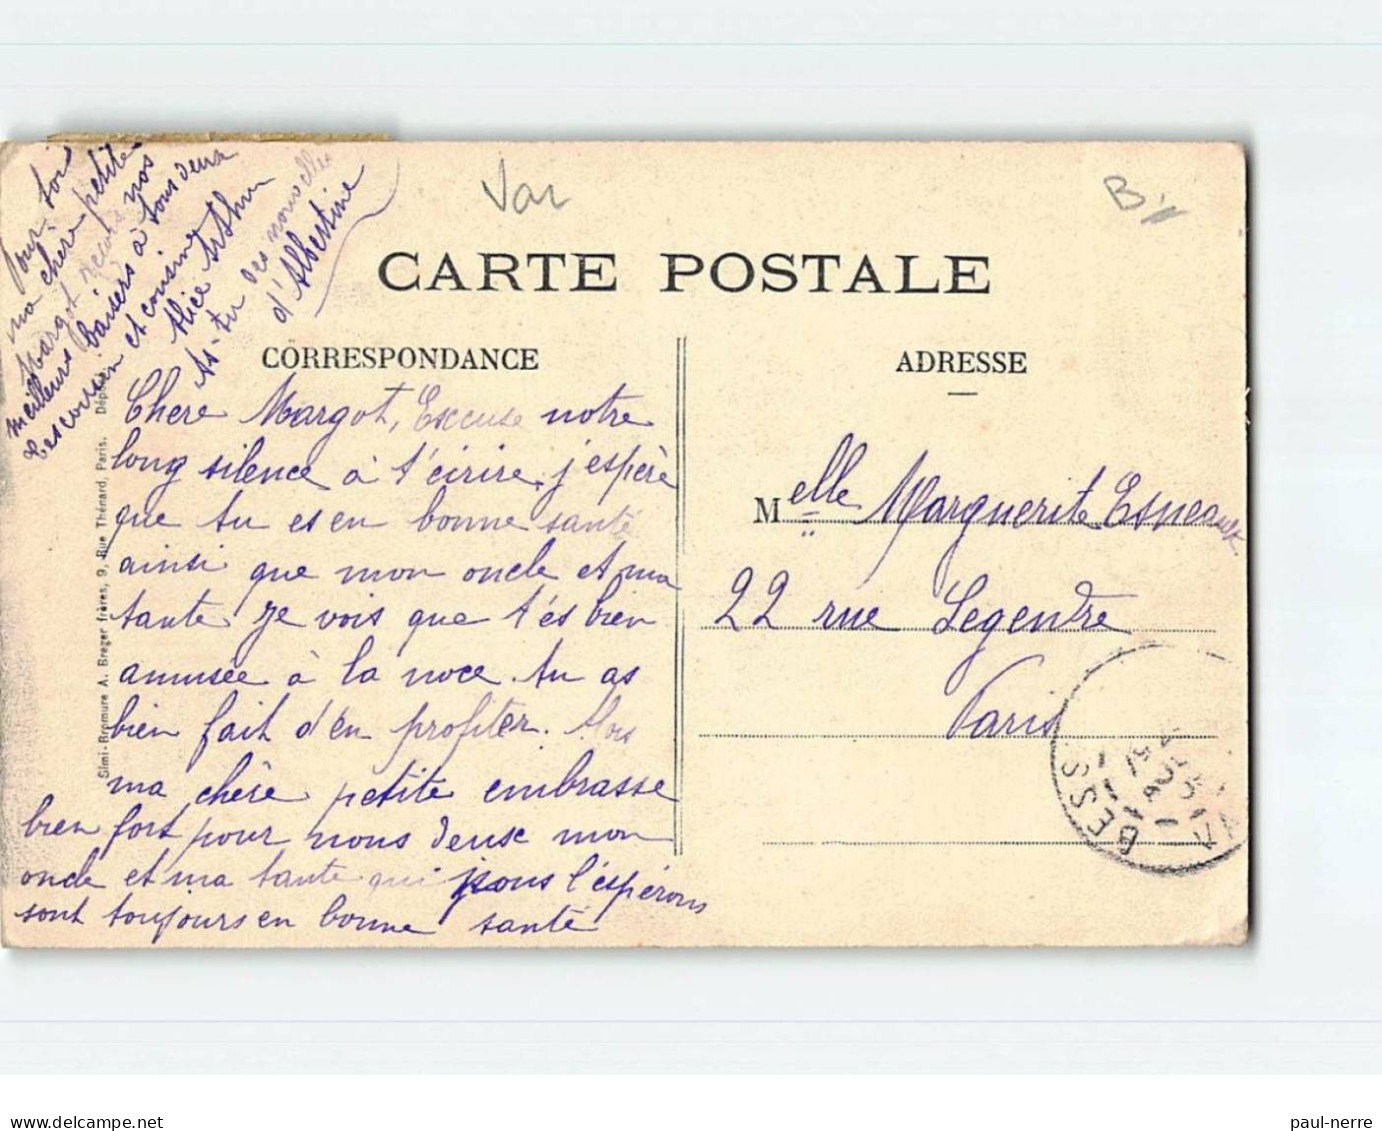 Var
B
CARTE POSTALE
CORRESPONDANCE
ADRESSE
Pour toi
ma chère petite
Margot reçois nos
meilleurs baisers à tous deux
tes cousin et cousine
Alice Arthur
As-tu des nouvelles
d'Albertine
Chere Margot, Excuse notre
long silence à t'ecrire, j'espère
que tu es en bonne santé
ainsi que mon oncle et ma
tante je vois que t'es bien
amusée à la noce tu as
bien fait d'en profiter. Alors
ma chère petite embrasse
bien fort pour nous deux mon
oncle et ma tante qui nous l'éspérons
sont toujours en bonne santé
Melle Marguerite Esneault
22 rue Legendre
Paris
BESS
VA
Simi-Bromure A. Breger frères, 9, Rue Thénard, Paris. Dép
www.delcampe.net
paul-nerre